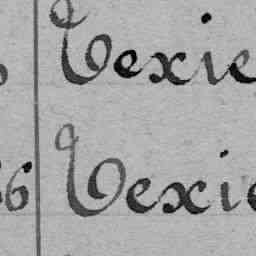 Texie
6 Texie